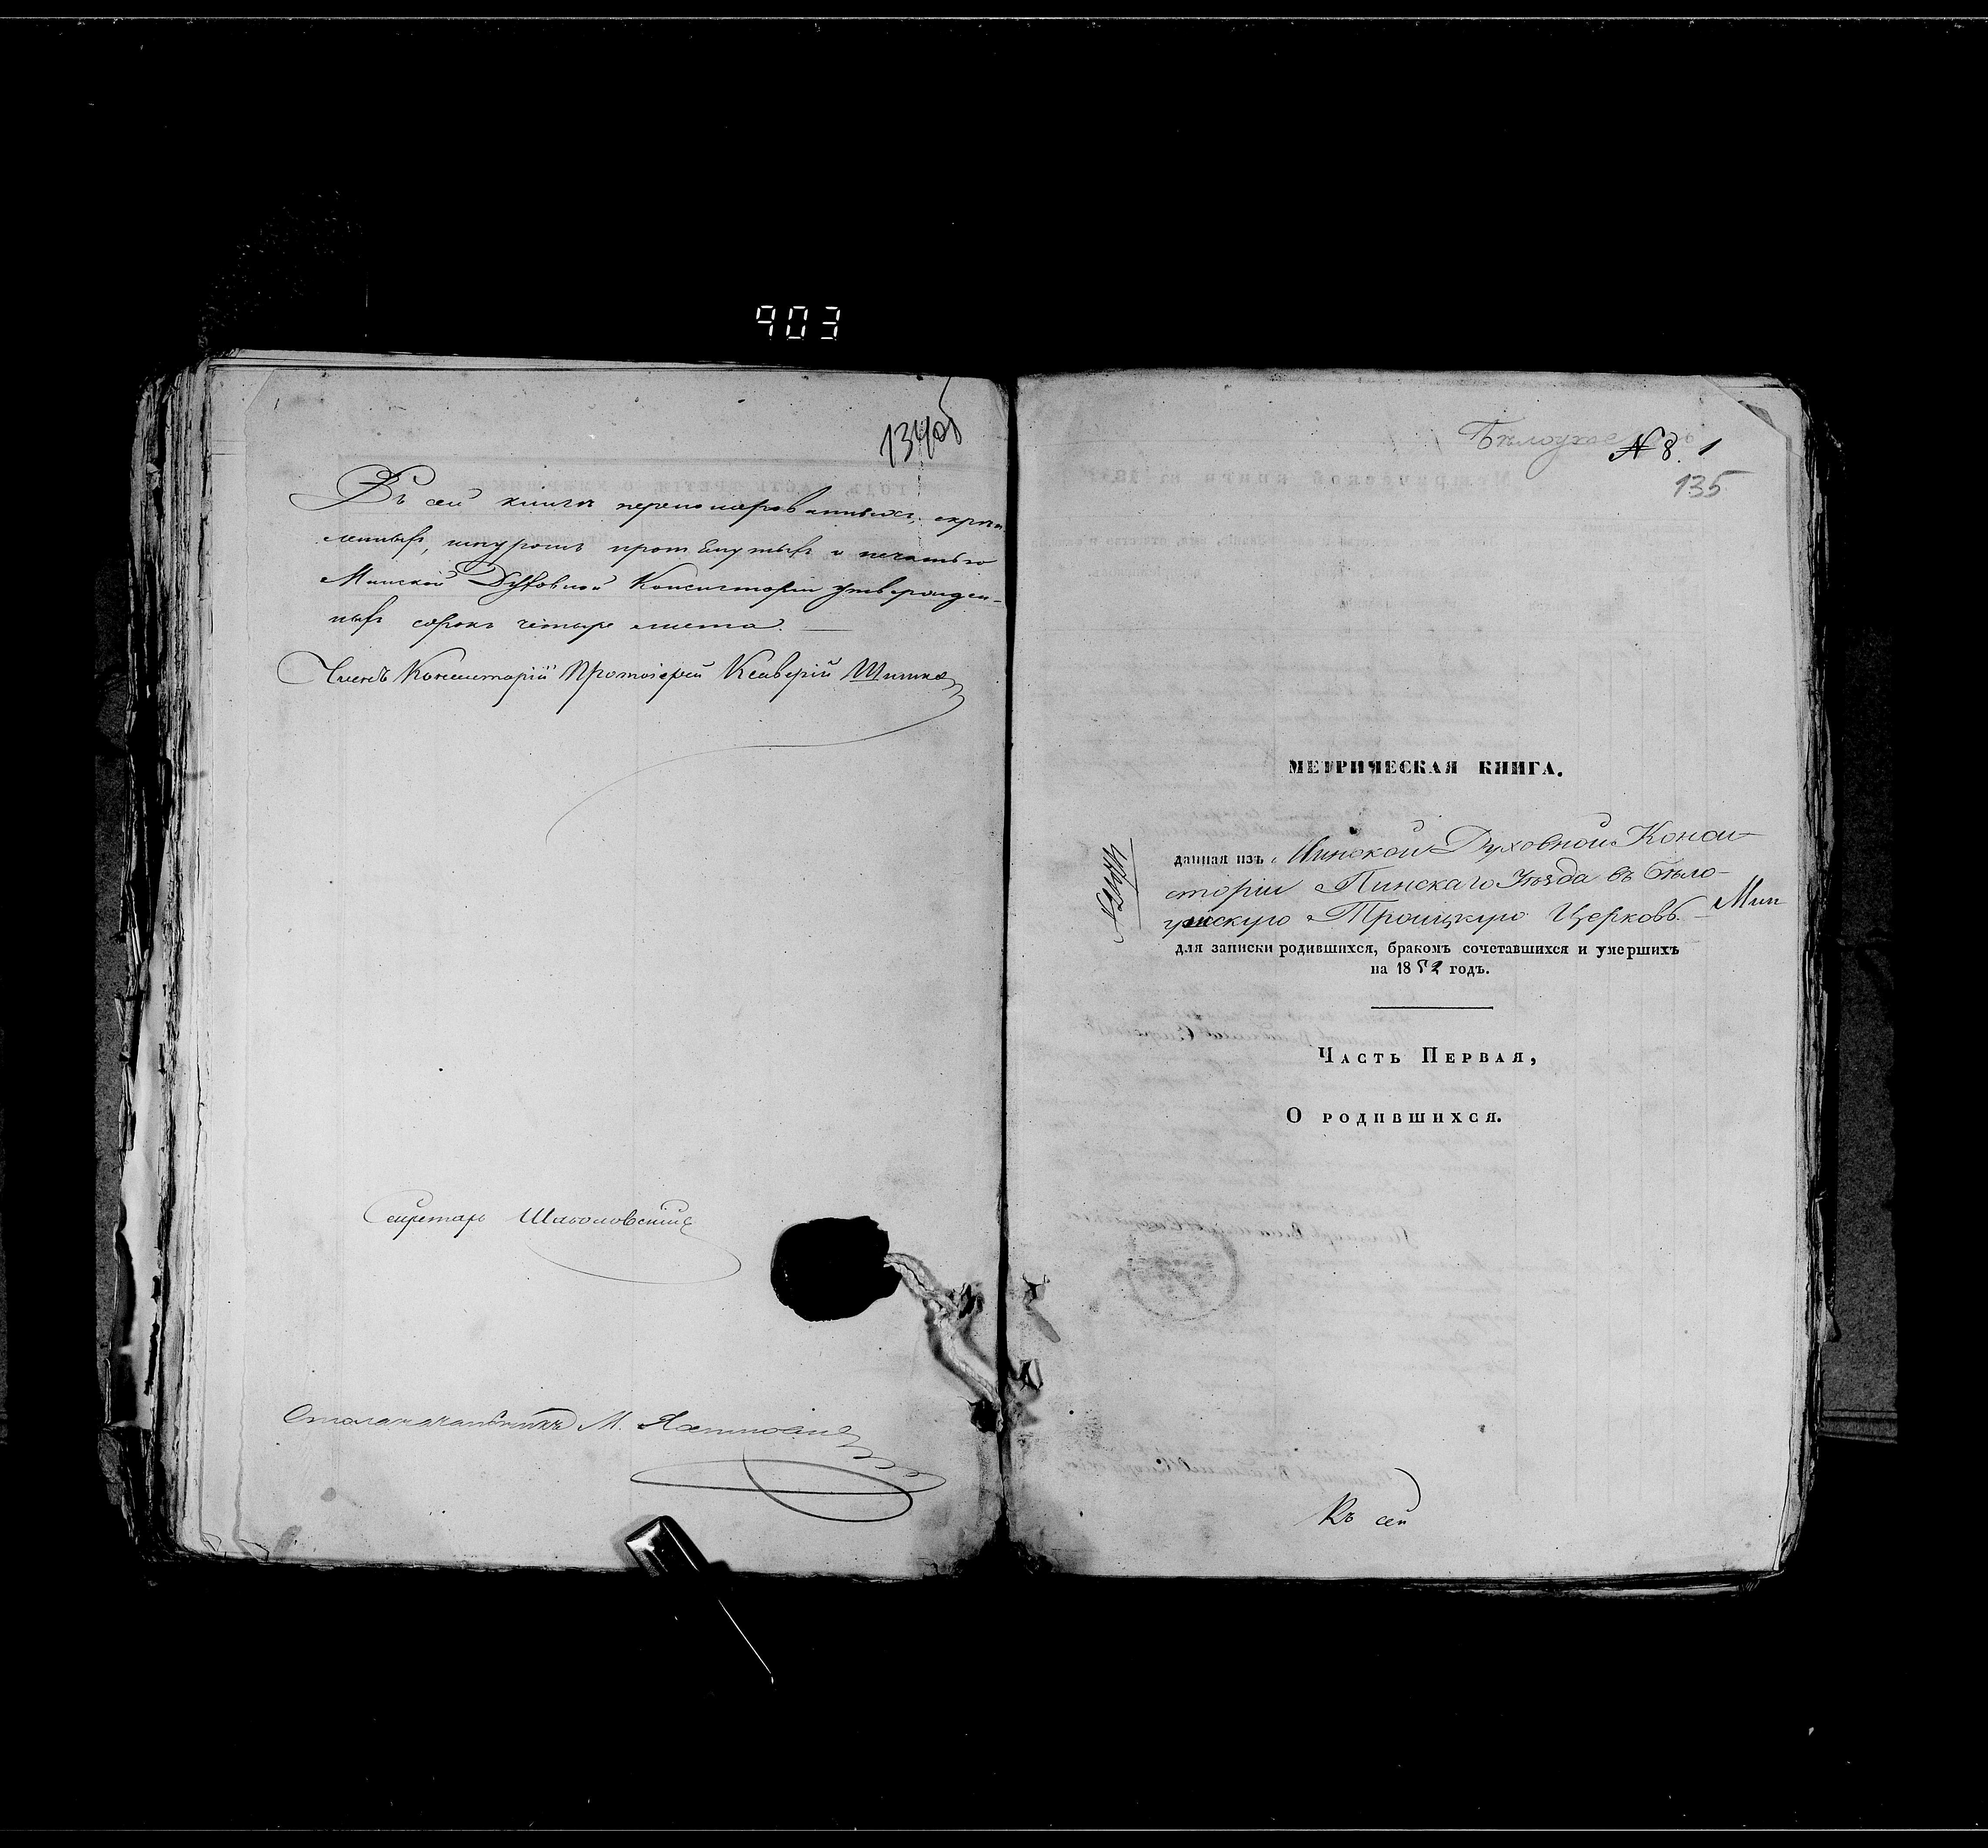 903
134об
Въ сей книгѣ перенумерованныхъ, скрѣп-
ленныхъ, шнуромъ протянутыхъ и печатью
Минской Духовной Консисторіи утвержден-
ныхъ сорокъ четыре листа.
Членъ Консисторіи Протоіерей
Секретарь
Столоначальникъ М.
№ 8. 1
135
МЕТРИЧЕСКАЯ КНИГА.
данная изъ Минской Духовной Конси-
сторіи Пинскаго Уѣзда въ Бѣло-
ускую Троицкую Церковь. Мин
для записки родившихся, бракомъ сочетавшихся и умершихъ
на 1852 годъ.
Часть Первая,
О родившихся.
Къ сей